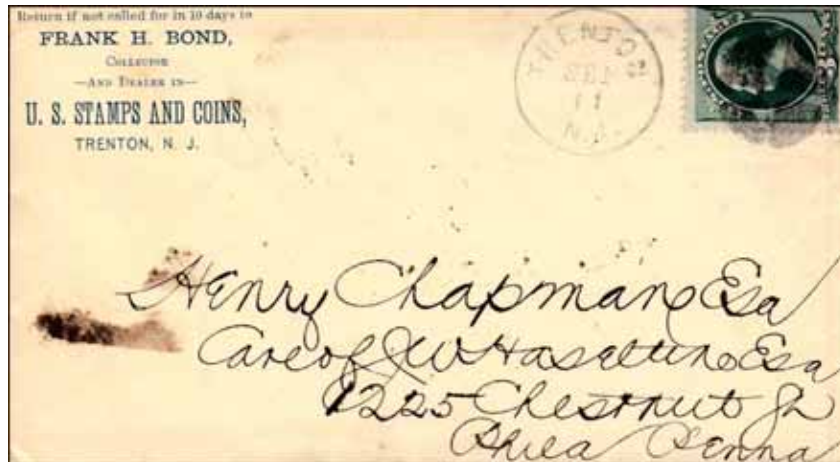 Return if not called for in 10 days to
FRANK H. BOND,
COLLECTOR
—AND DEALER IN—
U. S. STAMPS AND COINS,
TRENTON, N. J.
TRENTON
11
N.J.
Henry Chapman Esq
Care of JW Haseltine Esq
1225 Chestnut St
Phila Penna